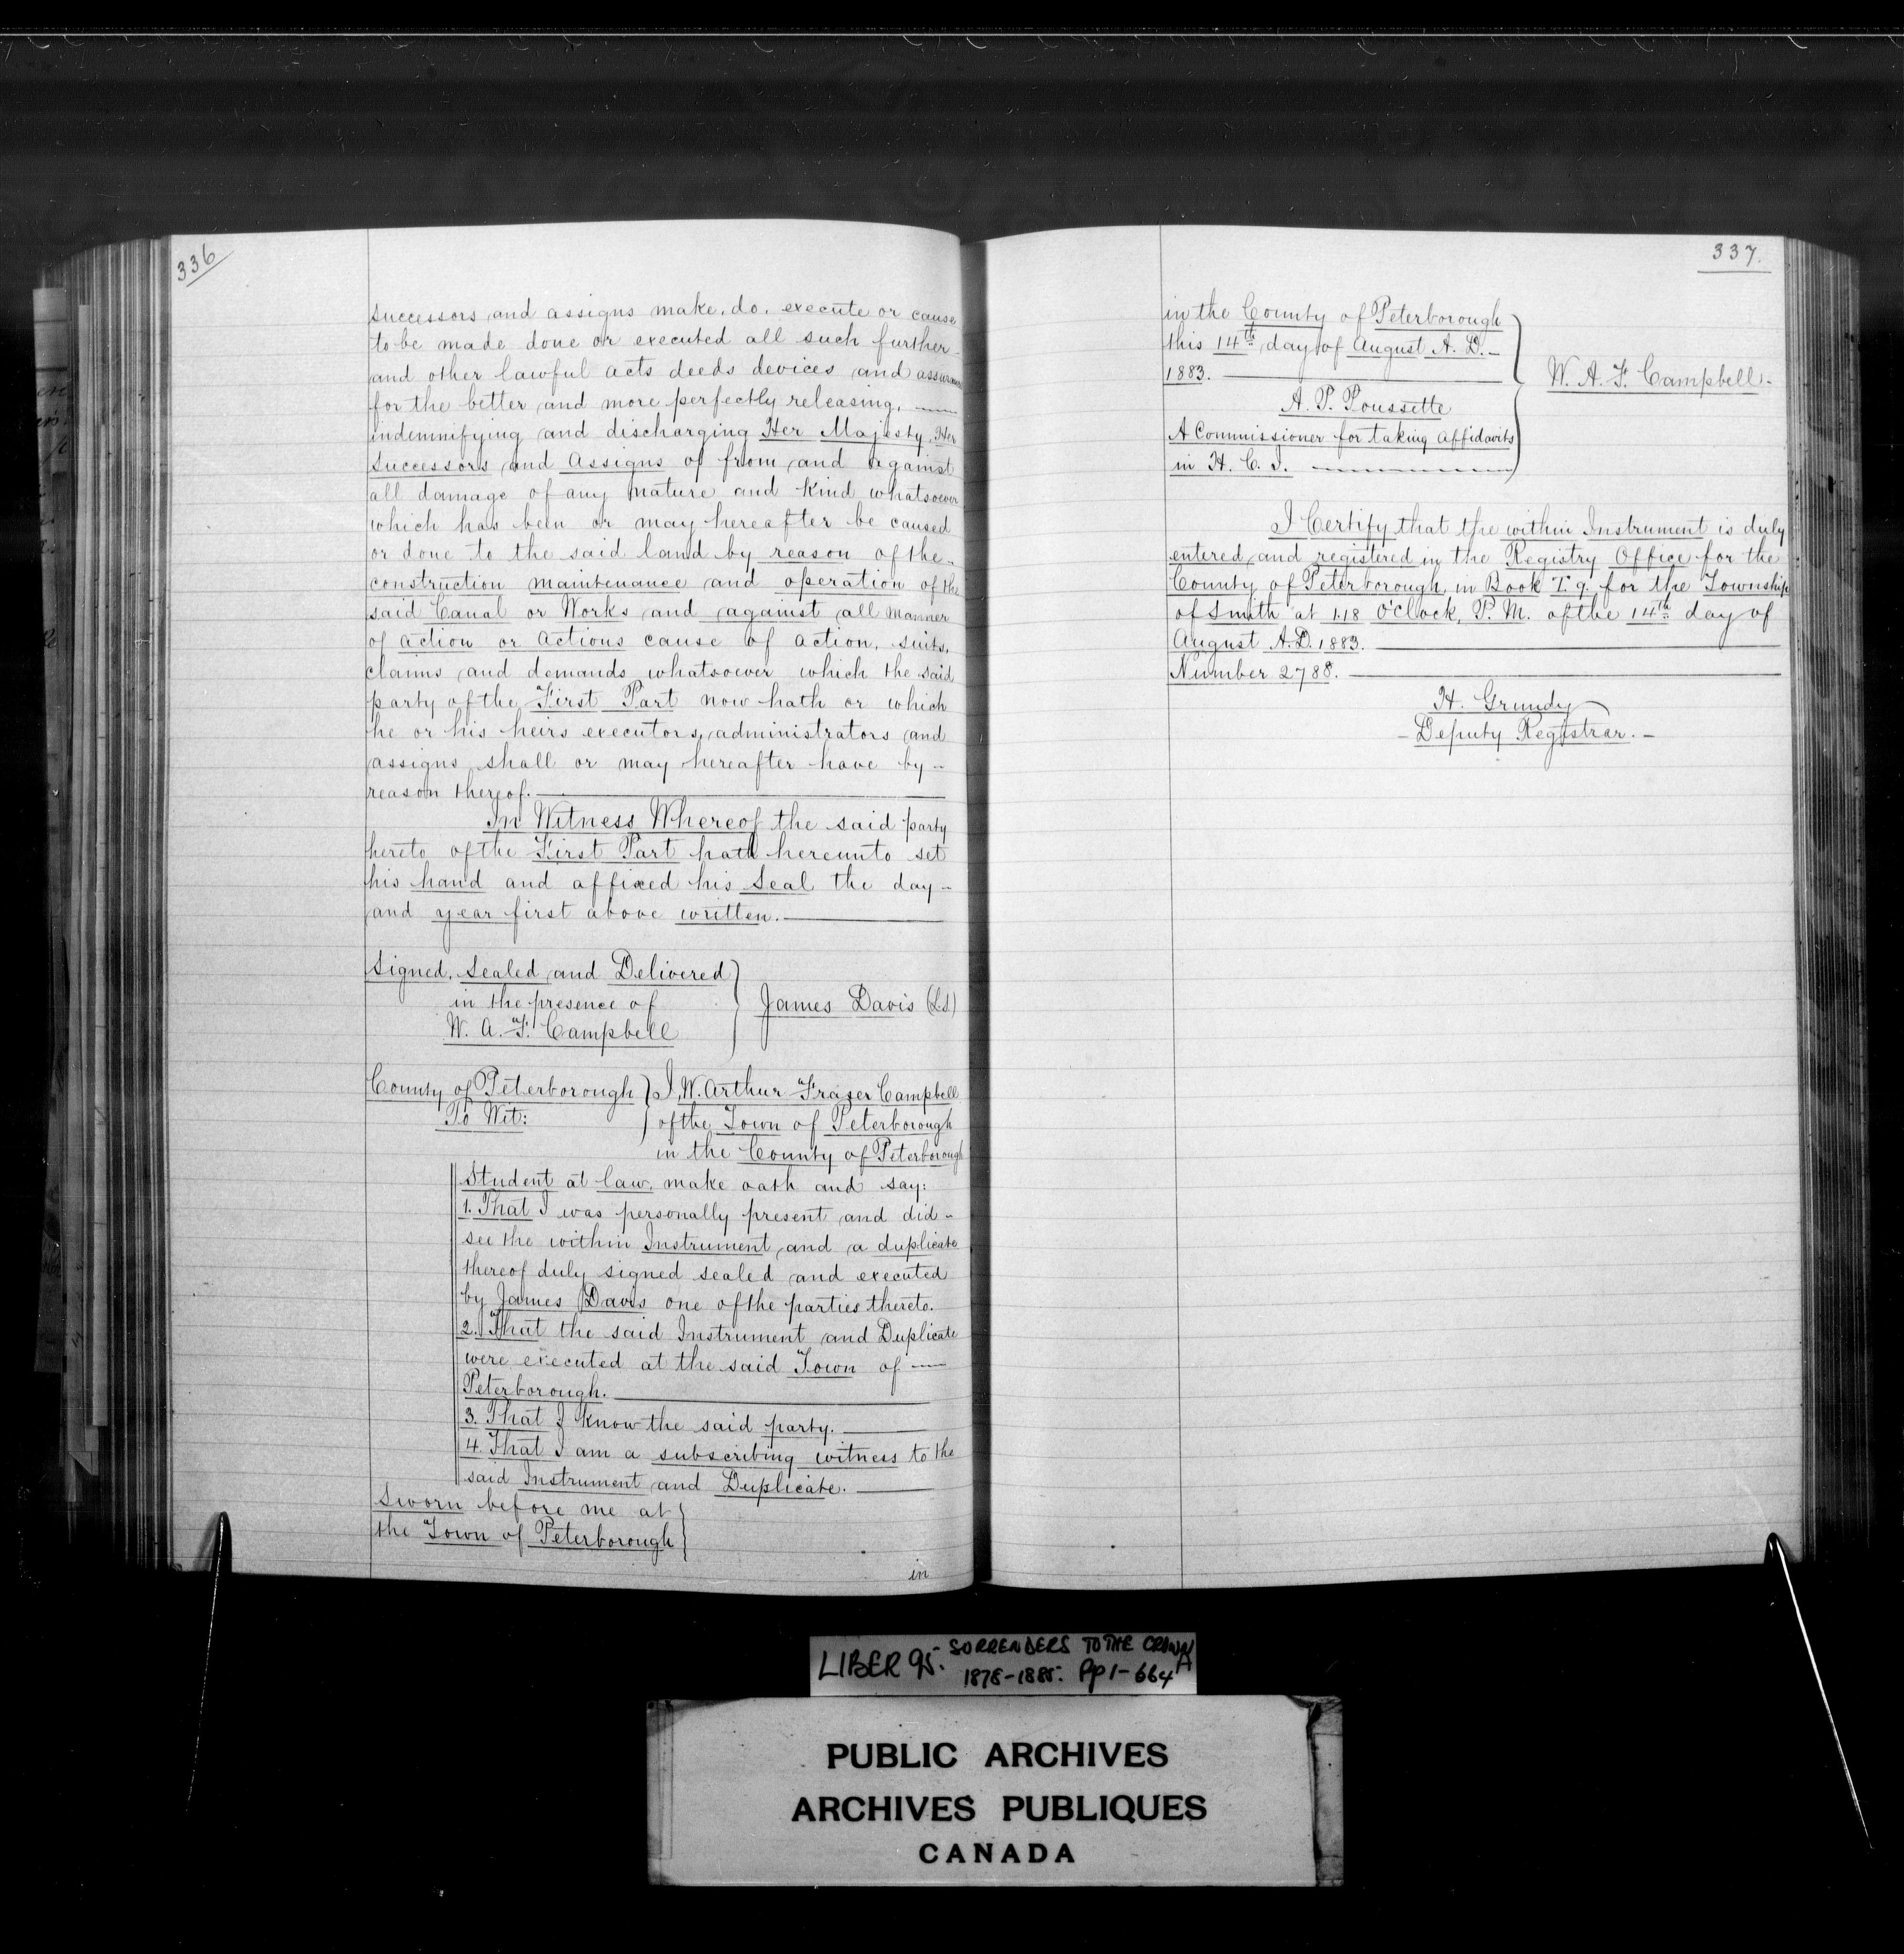 336
successors and assigns make, do, execute or cause
to be made done or executed all such further
and other lawful acts deeds devices and assurances
for the better and more perfectly releasing,
indemnifying and discharging Her Majesty, Her
Successors and Assigns of from and against
all damage of any nature and kind whatsoever
which has been or may hereafter be caused
or done to the said land by reason of the
construction maintenance and operation of the
said Canal or Works and against all manner
of action or actions cause of action, suits,
claims and demands whatsoever which the said
party of the First Part now hath or which
he or his heirs executors, administrators and
assigns shall or may hereafter have by
reason thereof.
In Witness Whereof the said party
hereto of the First Part hath hereunto set
his hand and affixed his Seal the day
and year first above written.
Signed, Sealed and Delivered
in the presence of
W. A. F. Campbell
James Davis (L.S)
County of Peterborough
To Wit:
I, W. Arthur Frazer Campbell
of the Town of Peterborough
in the County of Peterborough
Student at law, make oath and say:
1. That I was personally present and did
see the within Instrument and a duplicate
thereof duly signed sealed and executed
by James Davis one of the parties thereto.
2. That the said Instrument and Duplicate
were executed at the said Town of
Peterborough.
3. That I know the said party.
4. That I am a subscribing witness to the
said Instrument and Duplicate.
Sworn before me at
the Town of Peterborough
in
337.
in the County of Peterborough
this 14th day of August A. D.
1883.
A. P. Poussette
A Commissioner for taking affidavits
in H. C. J.
W. A. F. Campbell.
I Certify that the within Instrument is duly
entered and registered in the Registry Office for the
County of Peterborough, in Book I. 9. for the Township
of Smith at 1.18 O'Clock, P. M. of the 14th day of
August A. D. 1883.
Number 2788.
H. Grundy
Deputy Registrar.
LIBER 95. SORRENDERS TO THE CROWN
1878-1885. Pp 1-664A
PUBLIC ARCHIVES
ARCHIVES PUBLIQUES
CANADA